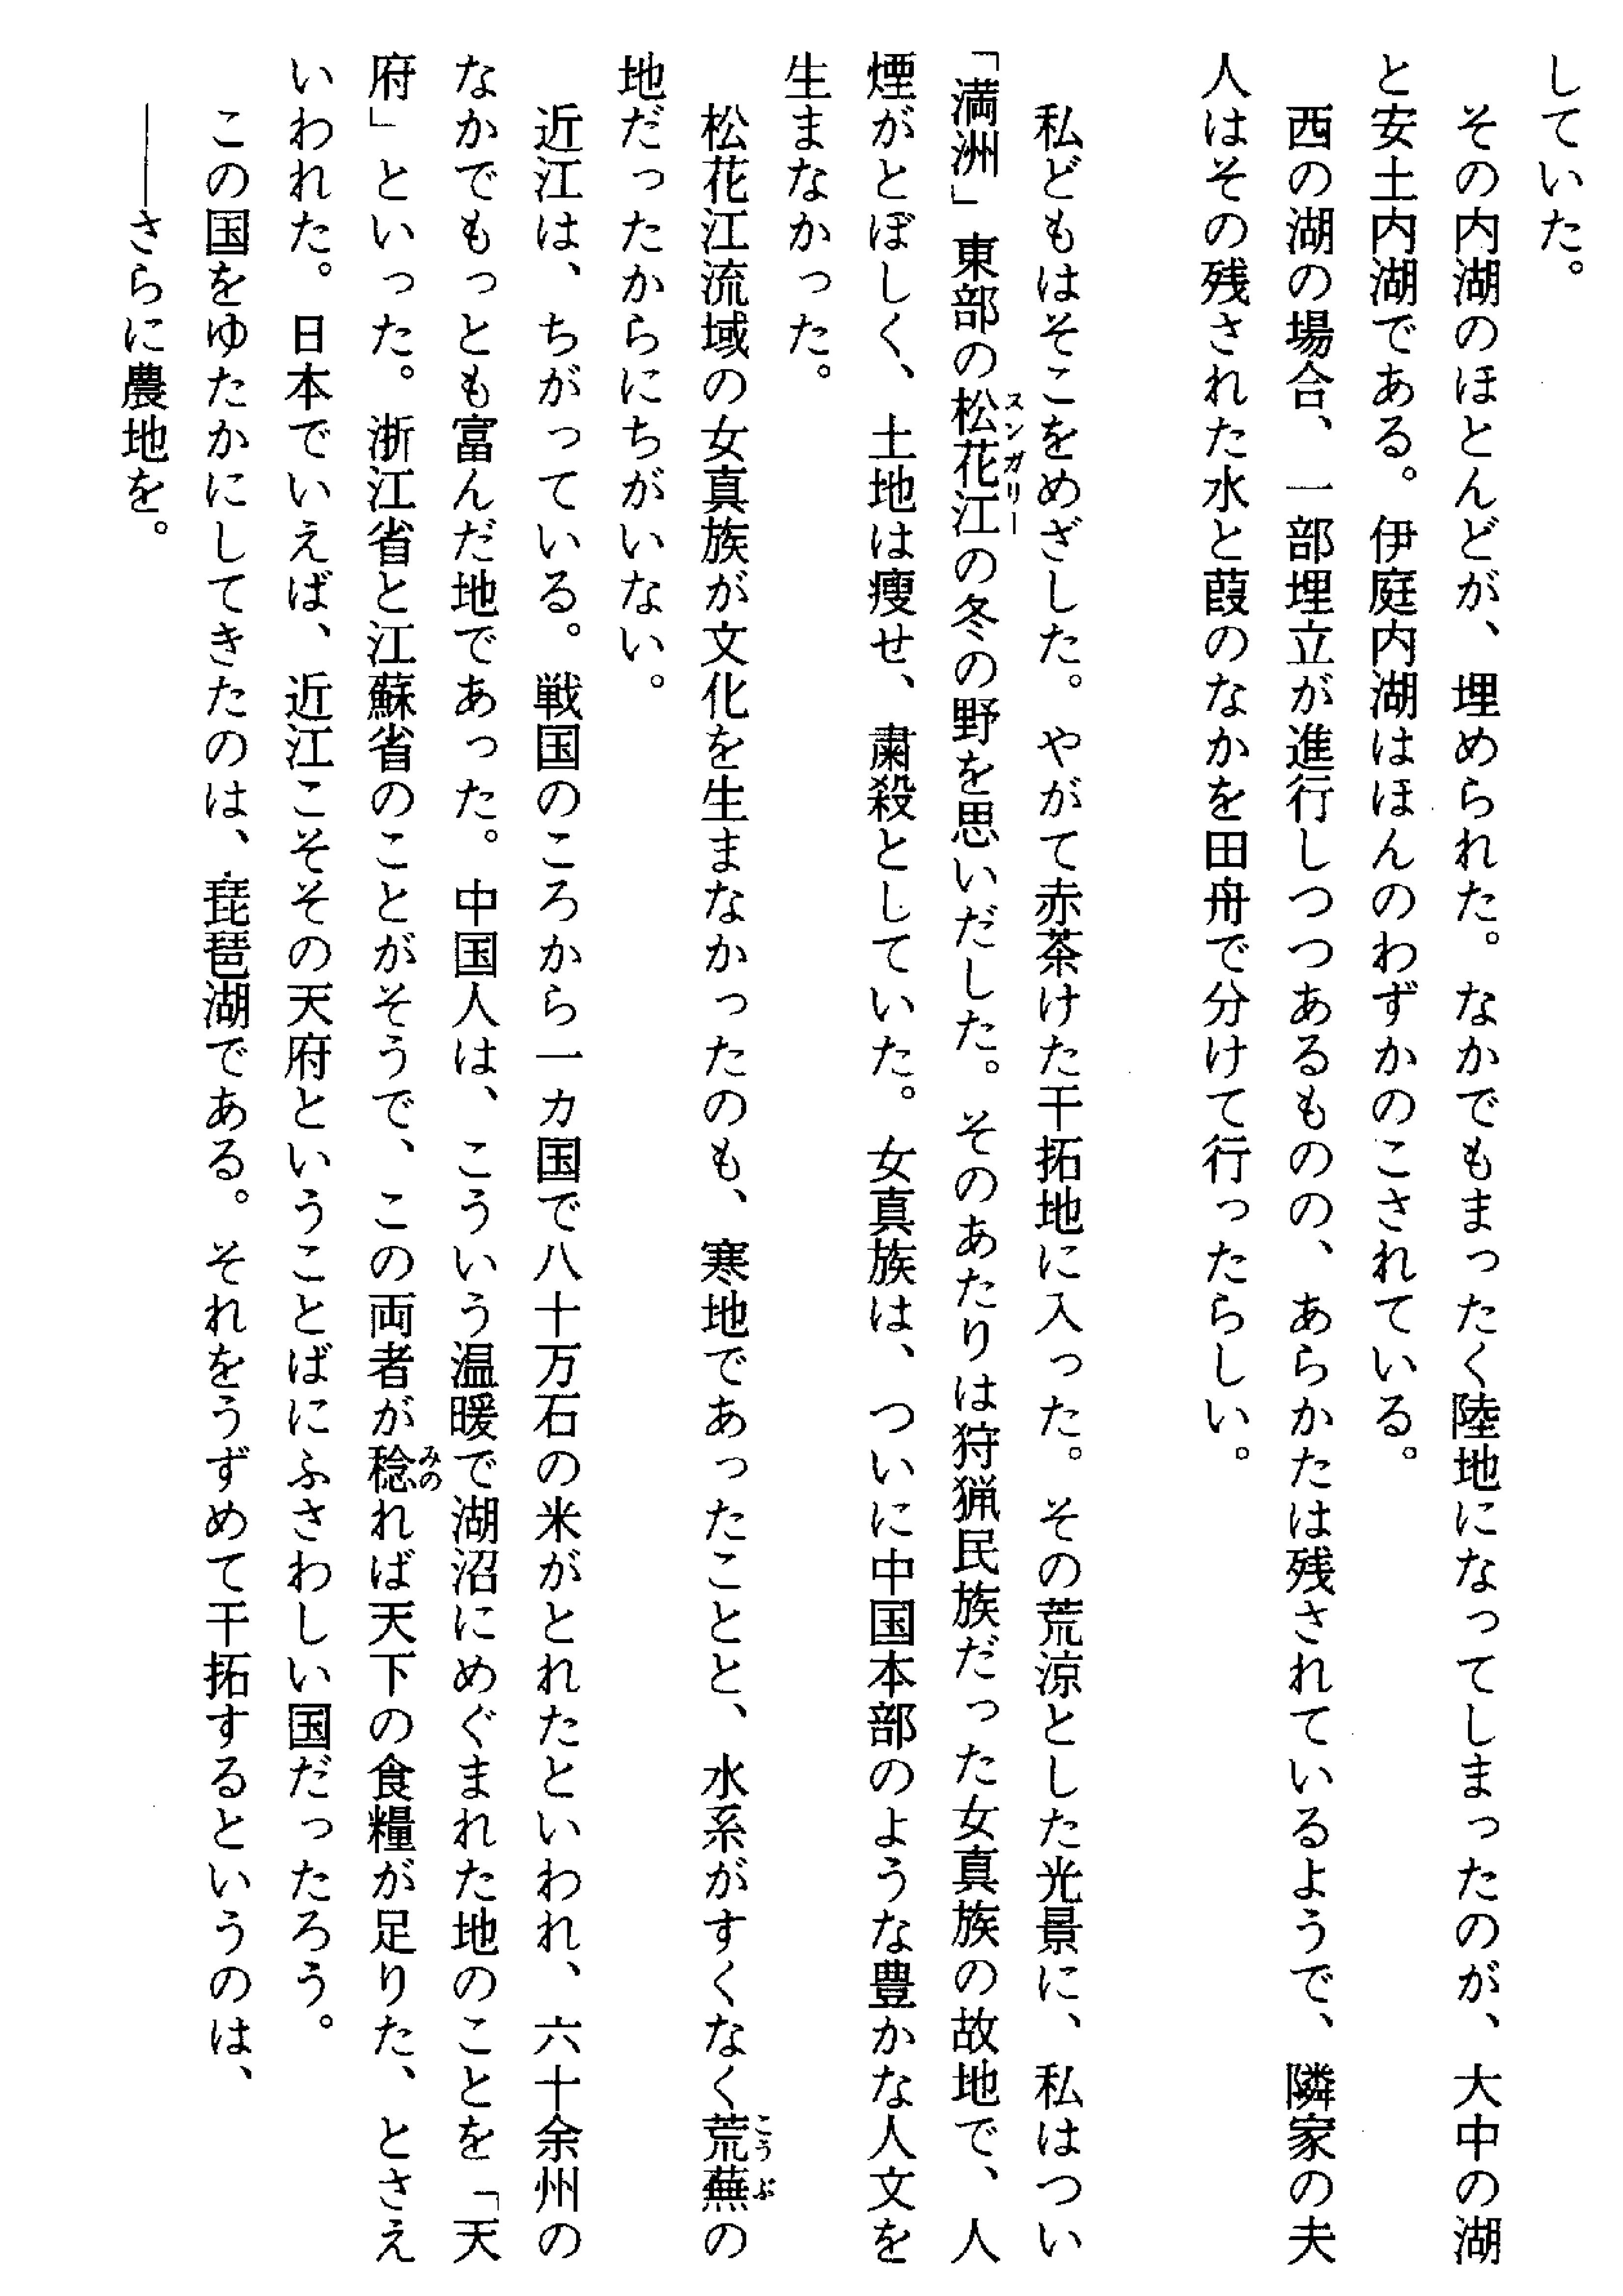 していた。
その内湖のほとんどが、埋められた。なかでもまったく陸地になってしまったのが、大中の湖
と安土内湖である。伊庭内湖はほんのわずかのこされている。
西の湖の場合、一部埋立が進行しつつあるものの、あらかたは残されているようで、隣家の夫
人はその残された水と葭のなかを田舟で分けて行ったらしい。
私どもはそこをめざした。やがて赤茶けた干拓地に入った。その荒涼とした光景に、私はつい
「満洲」東部の松花江の冬の野を思いだした。そのあたりは狩猟民族だった女真族の故地で、人
スンガリー
煙がとぼしく、土地は痩せ、粛殺としていた。女真族は、ついに中国本部のような豊かな人文を
生まなかった。
松花江流域の女真族が文化を生まなかったのも、寒地であったことと、水系がすくなく荒蕪の
こうぶ
地だったからにちがいない。
近江は、ちがっている。戦国のころから一カ国で八十万石の米がとれたといわれ、六十余州の
なかでもっとも富んだ地であった。中国人は、こういう温暖で湖沼にめぐまれた地のことを「天
府」といった。浙江省と江蘇省のことがそうで、この両者が稔れば天下の食糧が足りた、とさえ
みの
いわれた。日本でいえば、近江こそその天府ということばにふさわしい国だったろう。
この国をゆたかにしてきたのは、琵琶湖である。それをうずめて干拓するというのは、
――さらに農地を。